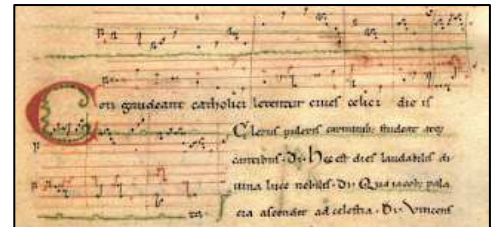 Congaudeant catholici letentur cives celici die is
Clerus pulcris carminibus studeat atque
cantibus. Di. Hec est dies laudabilis di
uina luce nobilis. Di. Qua iacobus pala
cia ascendit ad celestia. Di. Vincens